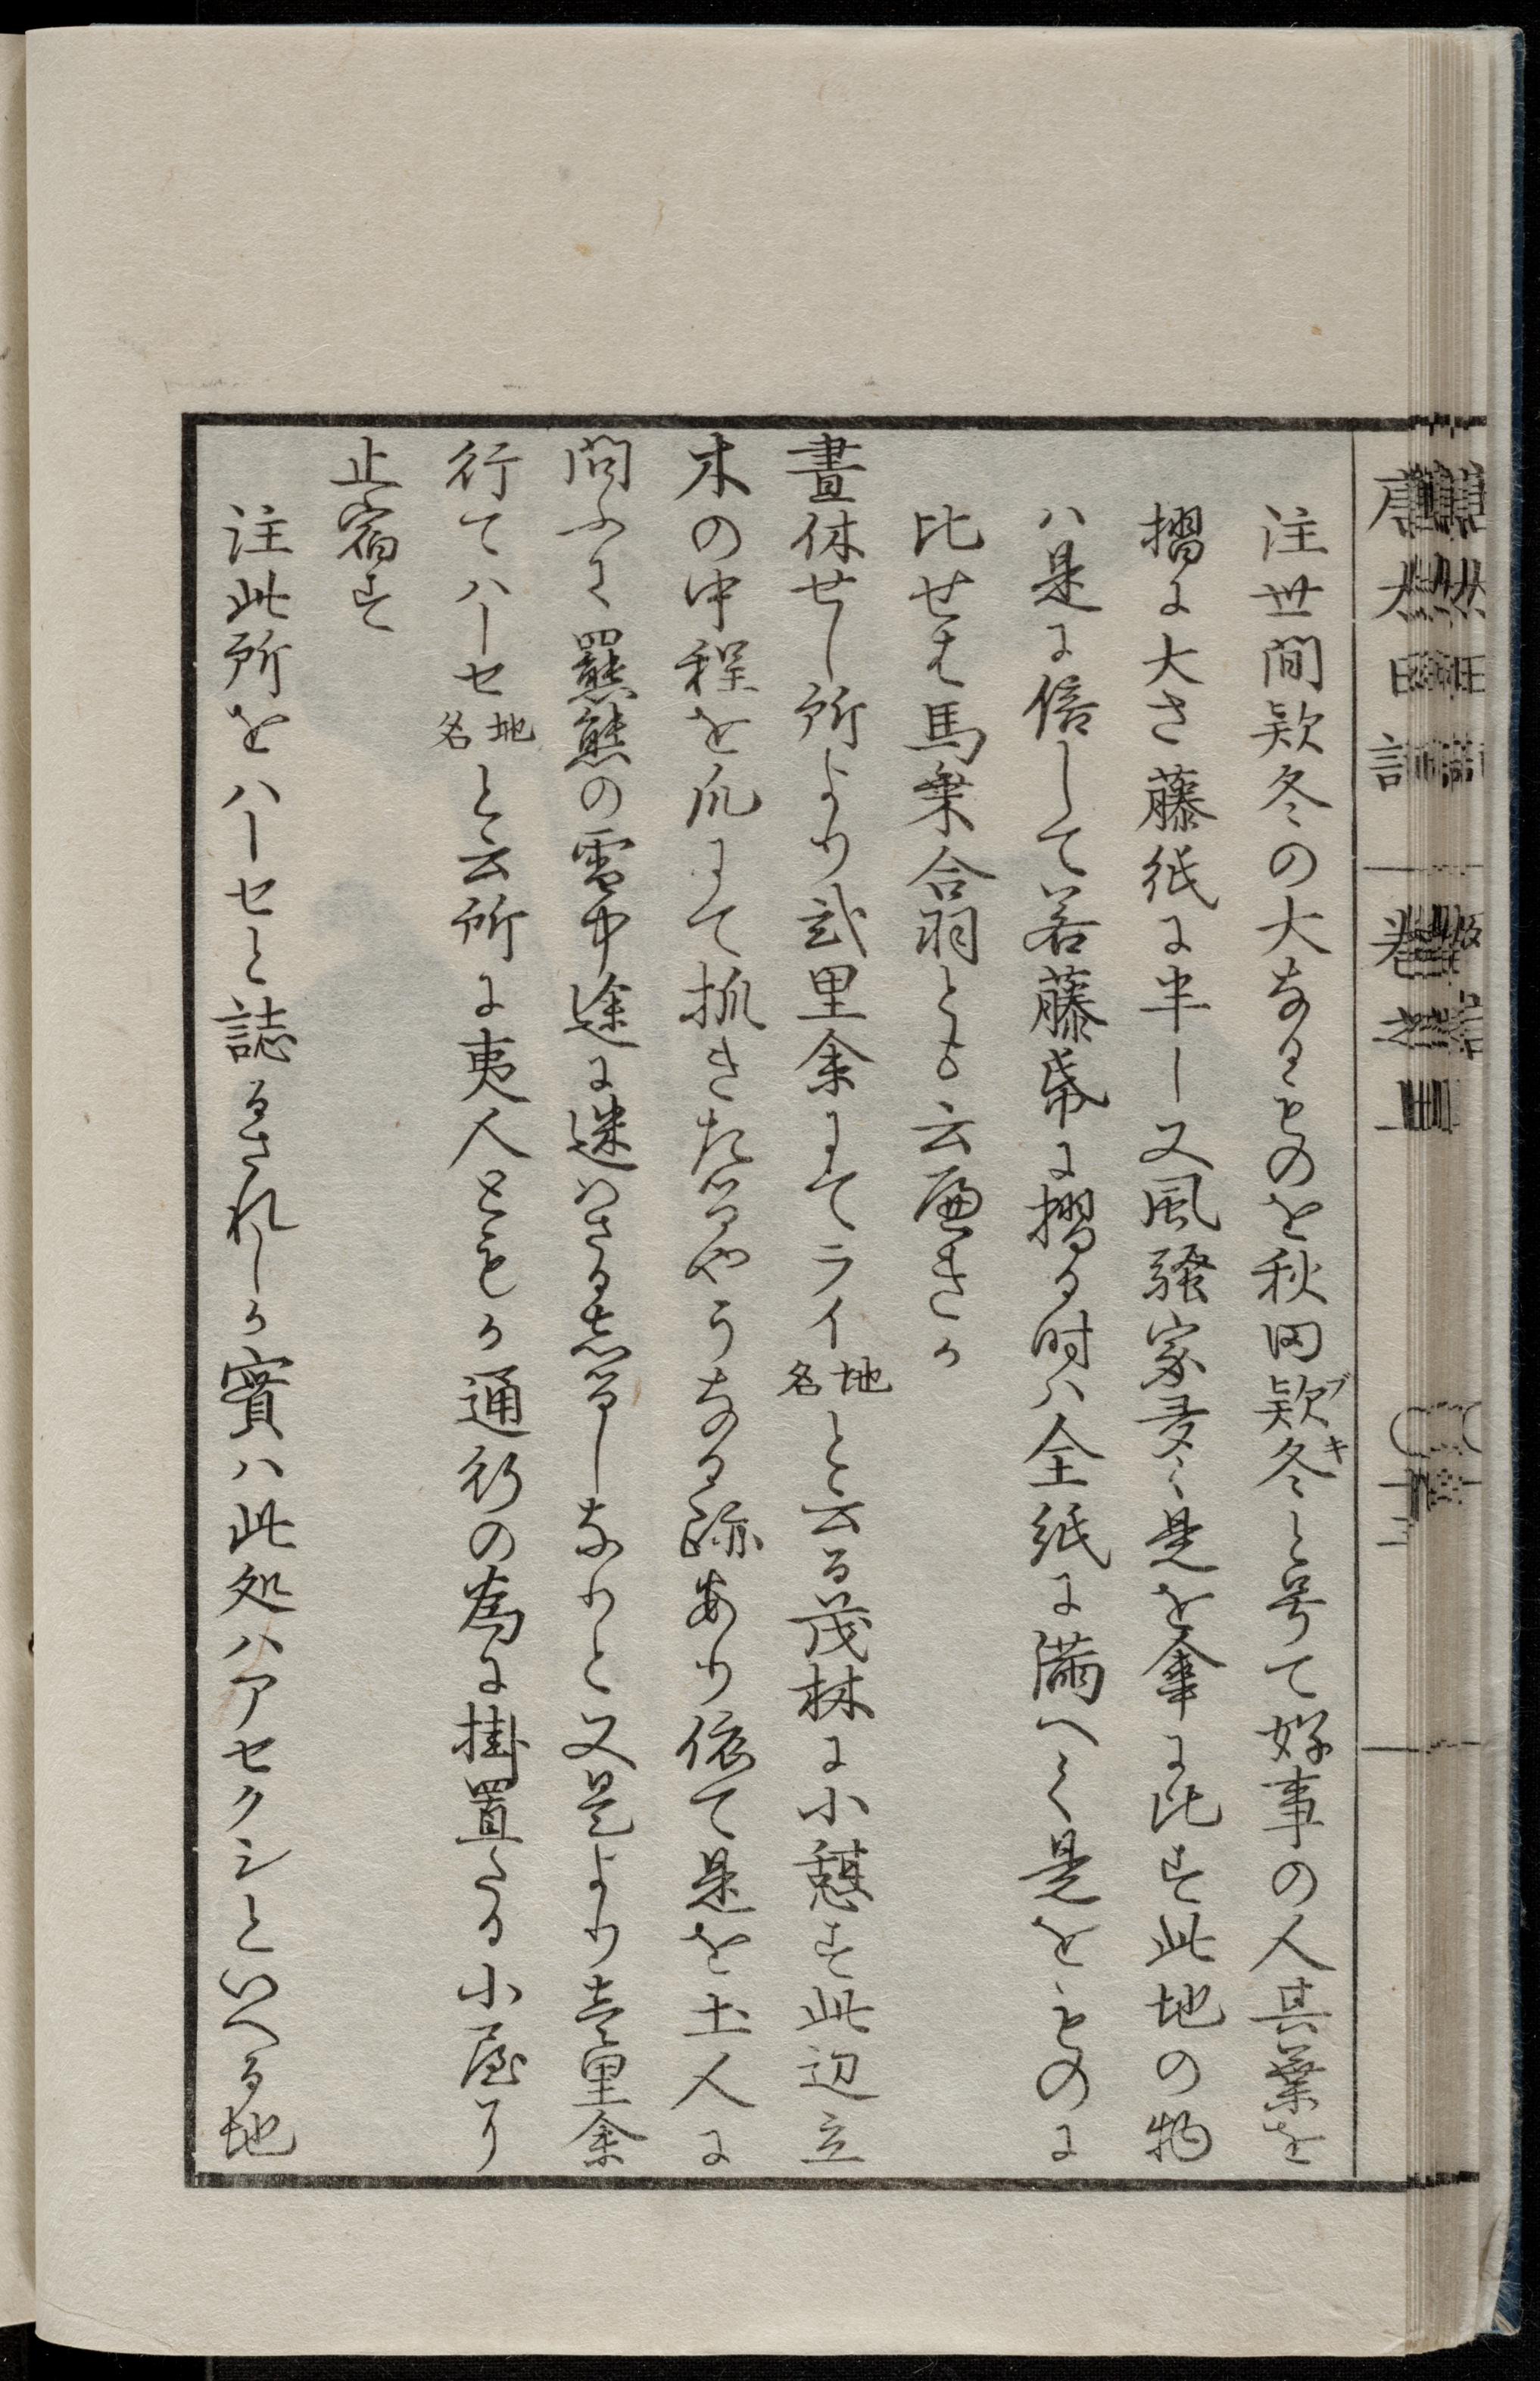 注世間欵冬の大なるものを秋田欵冬と号て好事の人其葉を
ブキ
摺に大さ藤紙に半し又風騒家多く是を傘に比す此地の物
ハ是に倍して若藤帋に摺る时ハ全紙に満へく是をものに
比せは馬乗合羽とも云へきか
晝休せし所より弐里余にてライ地名と云る茂林に小憩す此辺立
木の中程を爪にて抓きたるやうなる跡あり依て是を土人に
問ふに羆熊の雪中途に迷はさる志るしなりと又是より壱里余
行てハーセ地名と云所に夷人ともか通行の為に掛置たる小屋り
止宿す
注此所をハーセと誌るされしか實ハ此処ハアセクシといへる地